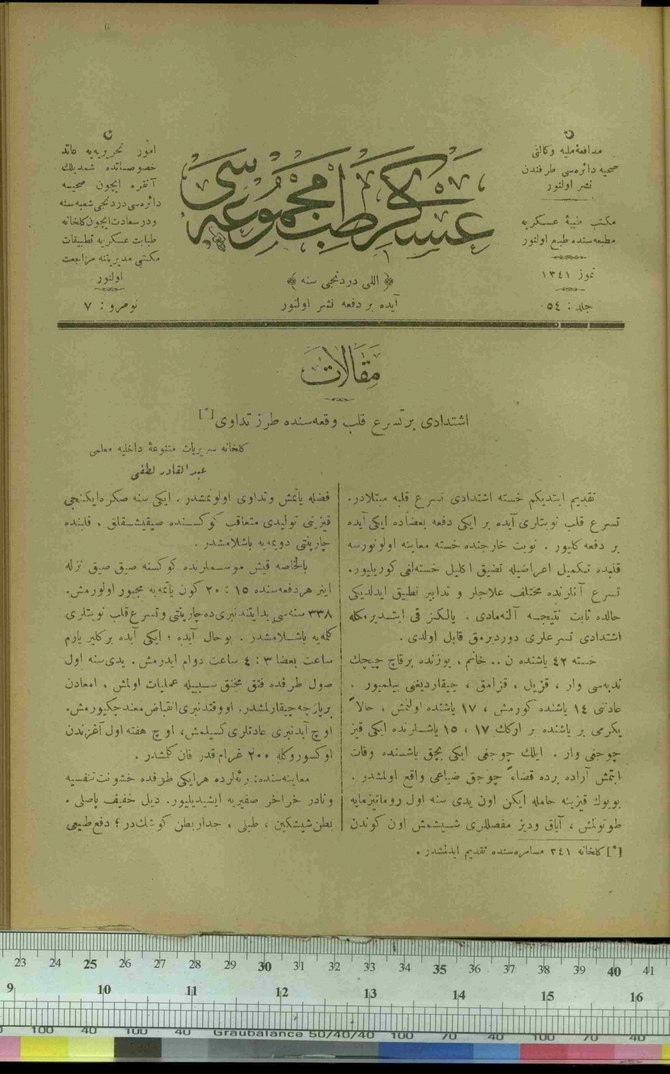 مدافعهٔ ملیه وکالتی
صحیه دائره‌سی طرفندن
نشر اولنور
مکتب طبیهٔ عسکریه
مطبعه‌سنده طبع اولنور
تموز ١٣٤١
جلد : ٥٤
عسکری طب مجموعه‌سی
﴿ اللی دردنجی سنه ﴾
آیده بر دفعه نشر اولنور
امور تحریریه‌یه عائد
خصوصاتده شمدیلك
آنقره ایچون صحیه
دائره‌سی دردنجی شعبه‌سنه
ودرسعادت ایچون کلخانه
طبابت عسکریه تطبیقات
مکتبی مدیریتنه مراجعت
اولنور
نومرو : ٧
مقالات
اشتدادی بر تسرع قلب وقعه‌سنده طرز تداوی [*]
کلخانه سریریات متنوعهٔ داخلیه معلمی
عبدالقادر لطفی
تقدیم ایتدیکم خسته اشتدادی تسرع قلبه مبتلادر.
تسرع قلب نوبتلری آیده بر ایکی دفعه بعضاده ایکی آیده
بر دفعه کلیور . نوبت خارجنده خسته معاینه اولونورسه
قلبده تکمیل اعراضیله تضیق اکلیل خسته‌لغی کوریلیور.
تسرع آنلرنده مختلف علاجلر و تدابیر تطبیق ایدلدیکی
حالده ثابت نتیجه آلنه‌مادی . یالکز قی ایتدیرمکله
اشتدادی تسرعلری دوردیرمق قابل اولدی .
خسته ٤٢ یاشنده ن .. خانم ، یوزنده برقاچ چیچك
ندبه‌سی وار ، قزیل ، قزامق ، چیقاردیغنی بیلمیور .
عادتنی ١٤ یاشنده کورمش ، ١٧ یاشنده اولنمش ، حالاً
یکرمی بر یاشنده بر اوکك ١٧ ، ١٥ یاشلرنده ایکی قیز
چوجغی وار . ایلك چوجغی ایکی بچق یاشنده وفات
ایتمش آراده برده قضاءً چوجق ضیاعی واقع اولمشدر .
بویوك قیزینه حامله ایکن اون یدی سنه اول روماتیزمایه
طوتولمش ، آیاق ودیز مفصللری شیشمش اون کوندن
فضله یاتمش وتداوی اولونمشدر . ایکی سنه صکره ایکنجی
قیزینی تولیدی متعاقب کوکسنده صیقیشقلق ، قلبنده
چارپنتی دویمه‌یه باشلامشدر .
بالخاصه قیش موسملرنده کوکسنه صیق صیق نزله
اینر هر دفعه‌سنده ١٥ : ٢٠ کون یاتمه‌یه مجبور اولورمش.
٣٣٨ سنه‌سی بدایتندنبری‌ده چارپنتی وتسرع قلب نوبتلری
کلمه‌یه باشلامشدر . بوحال آیده ، ایکی آیده برکلیر یارم
ساعت بعضا ٣ : ٤ ساعت دوام ایدرمش . یدی سنه اول
صول طرفده فتق مختنق سببیله عملیات اولمش . امعادن
برپارچه چیقارلمشدر. اووقتدنبری انقباض معند چکیورمش.
اوچ آیدنبری عادتلری کسیلمش، اوچ هفته اول آغزندن
اوکسوروکله ٢٠٠ غرام قدر قان کلمشدر .
معاینه‌سنده: رئه‌لرده هر ایکی طرفده خشونت تنفسیه
ونادر خراخر صفیریه ایشیدیلیور. دیل خفیف پاصلی .
بطن شیشکین ، طبلی . جدار بطن کوشك‌در؛ دفع طبیعی
[*] کلخانه ٢٤١ مسامره‌سنده تقدیم ایدلمشدر .
23 24 25 26 27 28 29 30 31 32 33 34 35 36 37 38 39 40 41
9 10 11 12 13 14 15 16
100 40 70 100 40 Graubalance 50/40/40 100 70 40 100 70 40